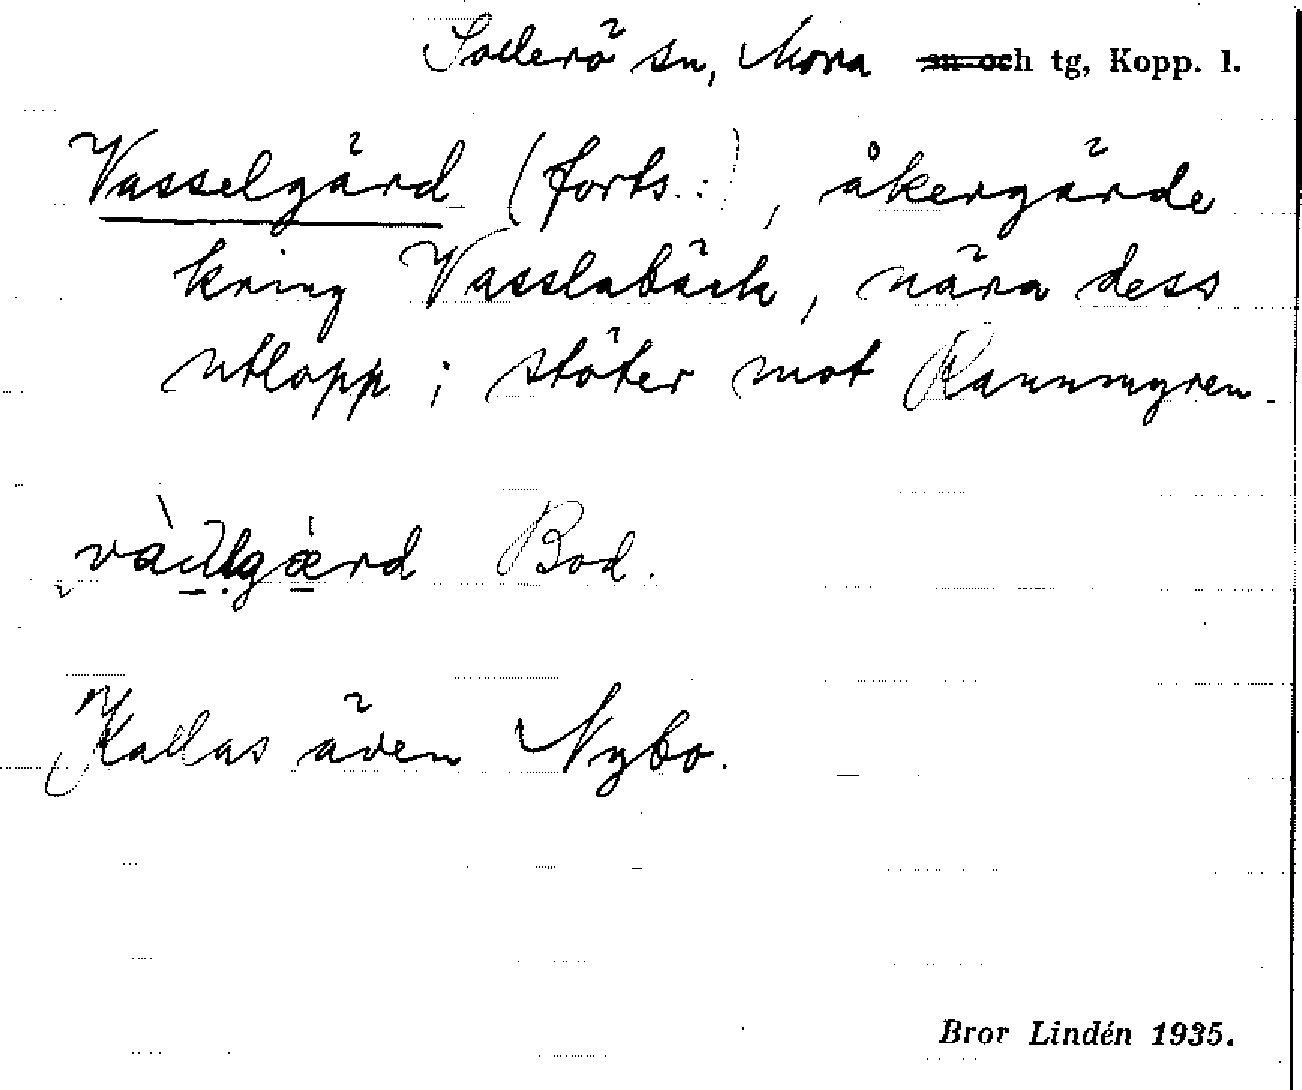 Sollerö sn, Mora sn och tg, Kopp. l.
Vasselgärd (forts.:), åkergärde
kring Vasslabäck, nära dess
utlopp; stöter mot Rannmyren.
Bod.
Kallas även Nybo.
Bror Lindén 1935.